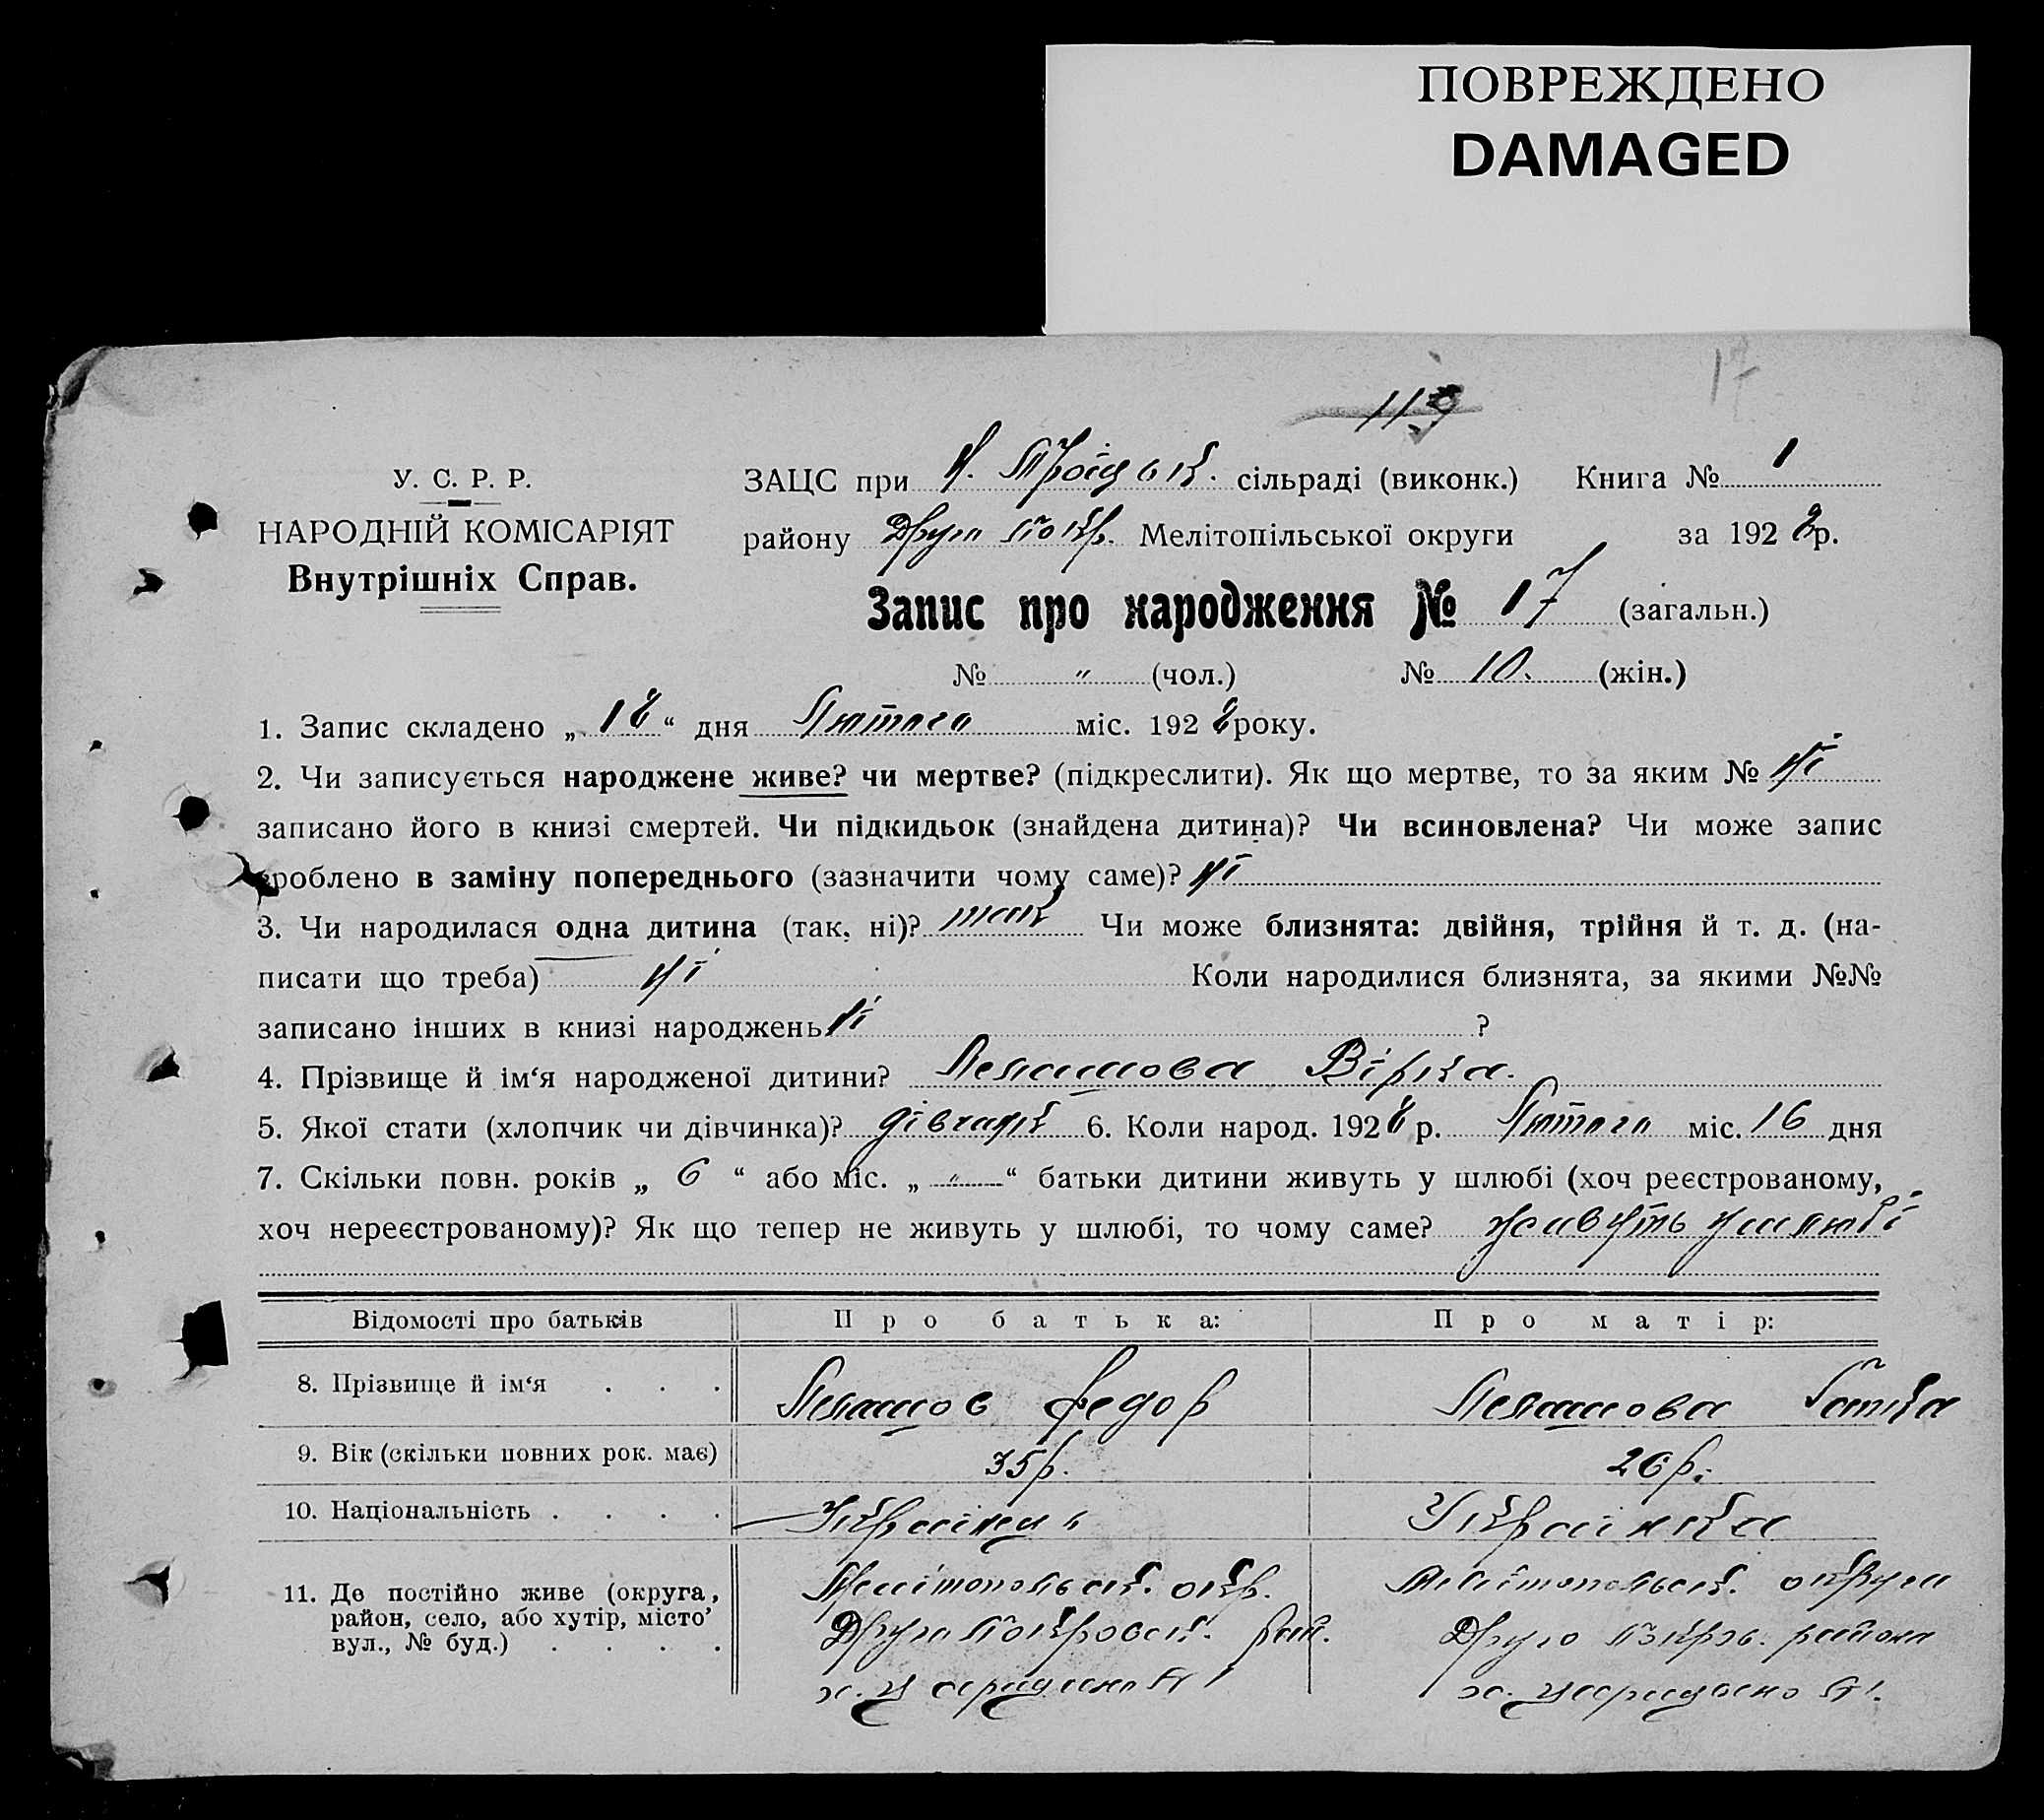 ПОВРЕЖДЕНО
DAMAGED
17
119
У. С. Р. Р.
НАРОДНІЙ КОМІСАРІЯТ
Внутрішніх Справ.
ЗАЦС при Н. Троіцьк. сільраді (виконк.) Книга № 1
району Друго Покр. Мелітопільської округи за 1928 р.
Запис про народження № 17 (загальн.)
№ " (чол.) № 10. (жін.)
1. Запис складено „ 18 “ дня Лютого міс. 1928 року.
2. Чи записується народжене живе? чи мертве? (підкреслити). Як що мертве, то за яким № ні
записано його в книзі смертей. Чи підкидьок (знайдена дитина)? Чи всиновлена? Чи може запис
зроблено в заміну попереднього (зазначити чому саме)? ні
3. Чи народилася одна дитина (так, ні)? так Чи може близнята: двійня, трійня й т. д. (на-
писати що треба) ні Коли народилися близнята, за якими №№
записано інших в книзі народжень ні ?
4. Прізвище й ім‘я народженої дитини? Лелашова Вірка.
5. Якої стати (хлопчик чи дівчинка)? 6. Коли народ. 1928 р. Лютого міс. 16 дня
7. Скільки повн. років „ 6 “ або міс. „ " “ батьки дитини живуть у шлюбі (хоч реєстрованому,
хоч нереєстрованому)? Як що тепер не живуть у шлюбі, то чому саме? живуть у шлюбі
Відомості про батьків Про батька: Про матір:
8. Прізвище й ім‘я . . . Лелашов Федор Лелашова
9. Вік (скільки повних рок. має) 35 р. 26 р.
10. Національність . . . . Українець Українка
11. Де постійно живе (округа, район, село, або хутір, місто’ вул., № буд.) . . . .
Мелітопольськ. окр. Мелітопольськ. округи
Друго Покровськ. рай. Друго Покров. района
х. х.